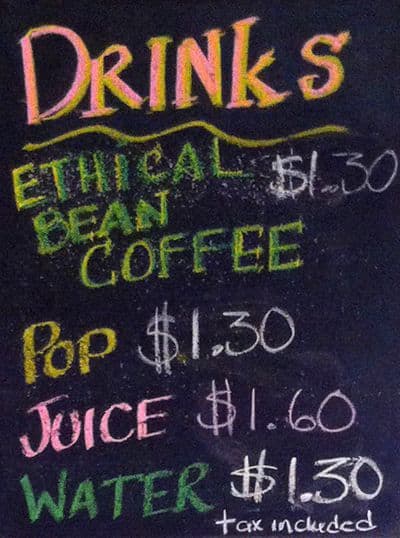 DRINKS
ETHICAL $1.30
BEAN
COFFEE
POP $1.30
JUICE $1.60
WATER $1.30
tax included